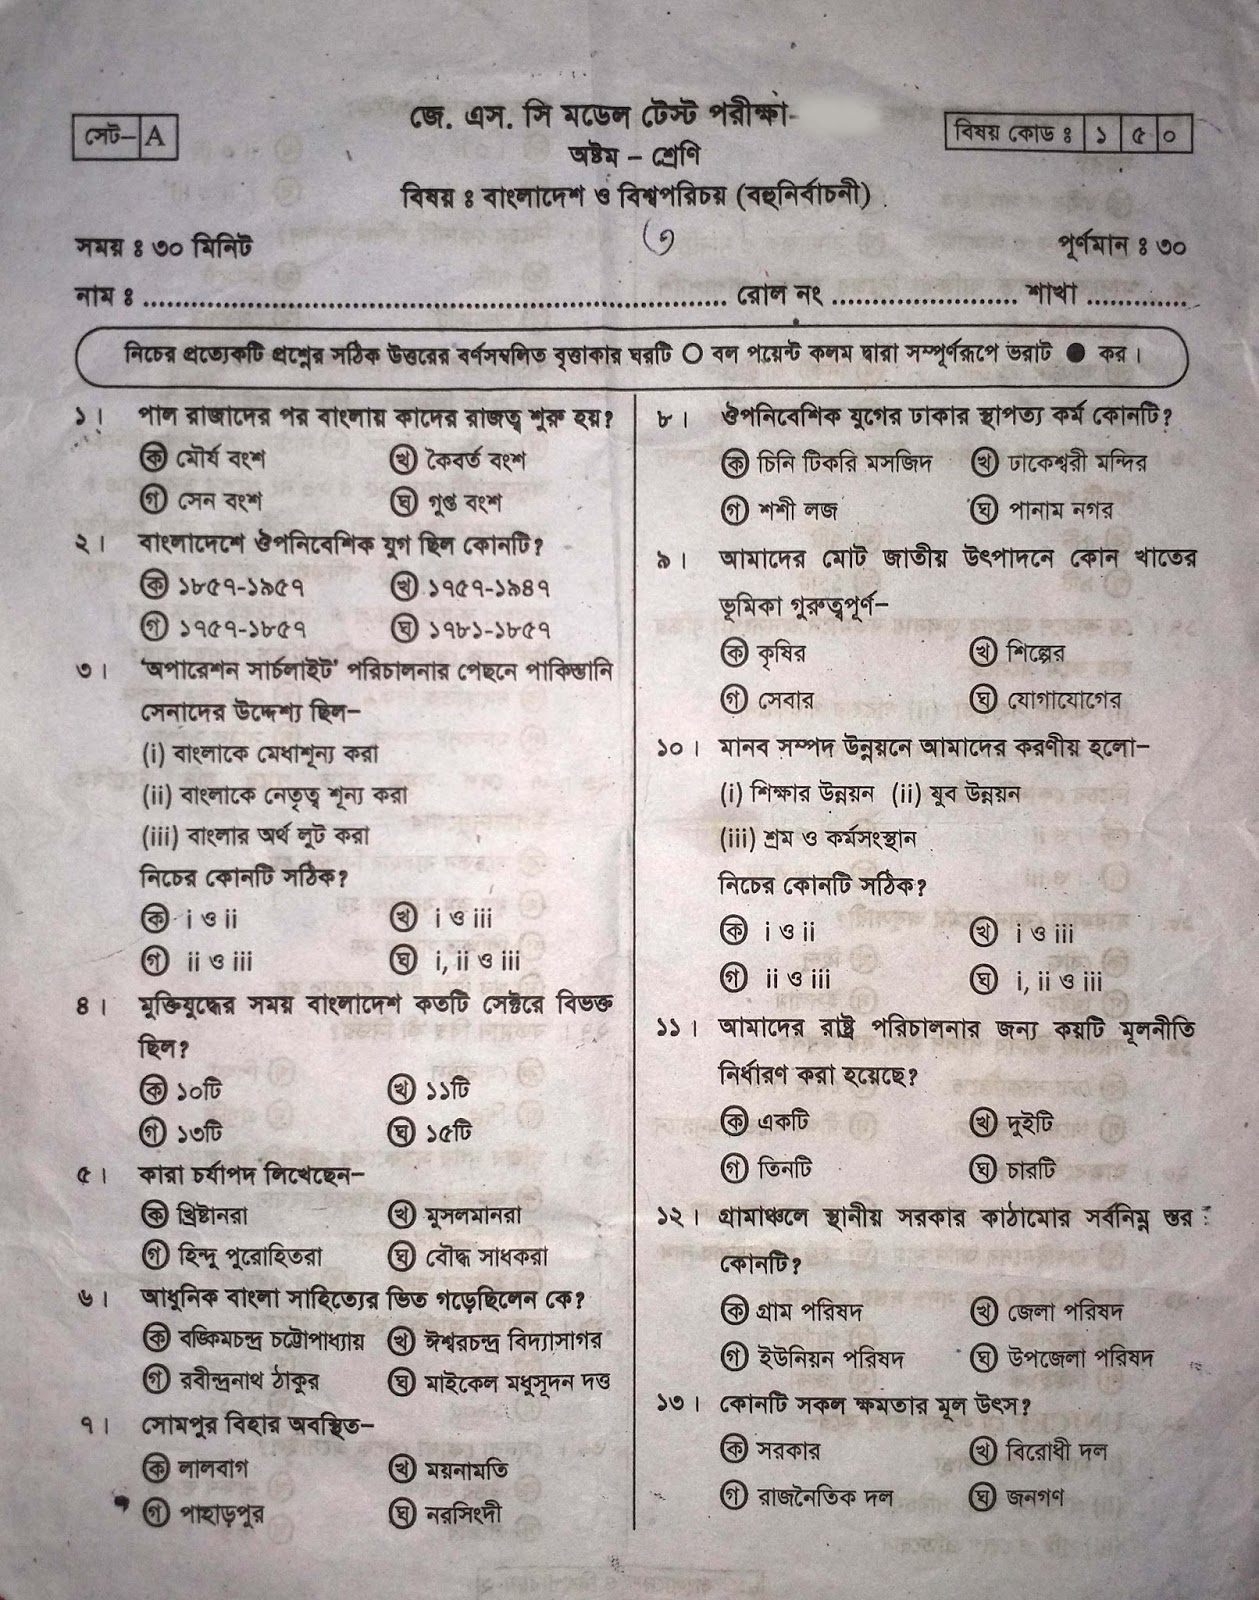 জে. এস. সি মডেল টেস্ট পরীক্ষা-
সেট- A
বিষয় কোড ঃ ১ ৫ ০
অষ্টম - শ্রেণি
বিষয় ঃ বাংলাদেশ ও বিশ্বপরিচয় (বহুনির্বাচনী)
সময় ঃ ৩০ মিনিট
পূর্ণমান ঃ ৩০
নাম ঃ ........................................................................ রোল নং ....................... শাখা .............
নিচের প্রত্যেকটি প্রশ্নের সঠিক উত্তরের বর্ণসম্বলিত বৃত্তাকার ঘরটি ○ বল পয়েন্ট কলম দ্বারা সম্পূর্ণরূপে ভরাট ● কর।
১। পাল রাজাদের পর বাংলায় কাদের রাজত্ব শুরু হয়?
ক মৌর্য বংশ খ কৈবর্ত বংশ
গ সেন বংশ ঘ গুপ্ত বংশ
২। বাংলাদেশে ঔপনিবেশিক যুগ ছিল কোনটি?
ক ১৮৫৭-১৯৫৭ খ ১৭৫৭-১৯৪৭
গ ১৭৫৭-১৮৫৭ ঘ ১৭৮১-১৮৫৭
৩। 'অপারেশন সার্চলাইট' পরিচালনার পেছনে পাকিস্তানি
সেনাদের উদ্দেশ্য ছিল-
(i) বাংলাকে মেধাশূন্য করা
(ii) বাংলাকে নেতৃত্ব শূন্য করা
(iii) বাংলার অর্থ লুট করা
নিচের কোনটি সঠিক?
ক i ও ii খ i ও iii
গ ii ও iii ঘ i, ii ও iii
৪। মুক্তিযুদ্ধের সময় বাংলাদেশ কতটি সেক্টরে বিভক্ত
ছিল?
ক ১০টি খ ১১টি
গ ১৩টি ঘ ১৫টি
৫। কারা চর্যাপদ লিখেছেন-
ক খ্রিষ্টানরা খ মুসলমানরা
গ হিন্দু পুরোহিতরা ঘ বৌদ্ধ সাধকরা
৬। আধুনিক বাংলা সাহিত্যের ভিত গড়েছিলেন কে?
ক বঙ্কিমচন্দ্র চট্টোপাধ্যায় খ ঈশ্বরচন্দ্র বিদ্যাসাগর
গ রবীন্দ্রনাথ ঠাকুর ঘ মাইকেল মধুসূদন দত্ত
৭। সোমপুর বিহার অবস্থিত-
ক লালবাগ খ ময়নামতি
গ পাহাড়পুর ঘ নরসিংদী
৮। ঔপনিবেশিক যুগের ঢাকার স্থাপত্য কর্ম কোনটি?
ক চিনি টিকরি মসজিদ খ ঢাকেশ্বরী মন্দির
গ শশী লজ ঘ পানাম নগর
৯। আমাদের মোট জাতীয় উৎপাদনে কোন খাতের
ভূমিকা গুরুত্বপূর্ণ-
ক কৃষির খ শিল্পের
গ সেবার ঘ যোগাযোগের
১০। মানব সম্পদ উন্নয়নে আমাদের করণীয় হলো-
(i) শিক্ষার উন্নয়ন (ii) যুব উন্নয়ন
(iii) শ্রম ও কর্মসংস্থান
নিচের কোনটি সঠিক?
ক i ও ii খ i ও iii
গ ii ও iii ঘ i, ii ও iii
১১। আমাদের রাষ্ট্র পরিচালনার জন্য কয়টি মূলনীতি
নির্ধারণ করা হয়েছে?
ক একটি খ দুইটি
গ তিনটি ঘ চারটি
১২। গ্রামাঞ্চলে স্থানীয় সরকার কাঠামোর সর্বনিম্ন স্তর
কোনটি?
ক গ্রাম পরিষদ খ জেলা পরিষদ
গ ইউনিয়ন পরিষদ ঘ উপজেলা পরিষদ
১৩। কোনটি সকল ক্ষমতার মূল উৎস?
ক সরকার খ বিরোধী দল
গ রাজনৈতিক দল ঘ জনগণ